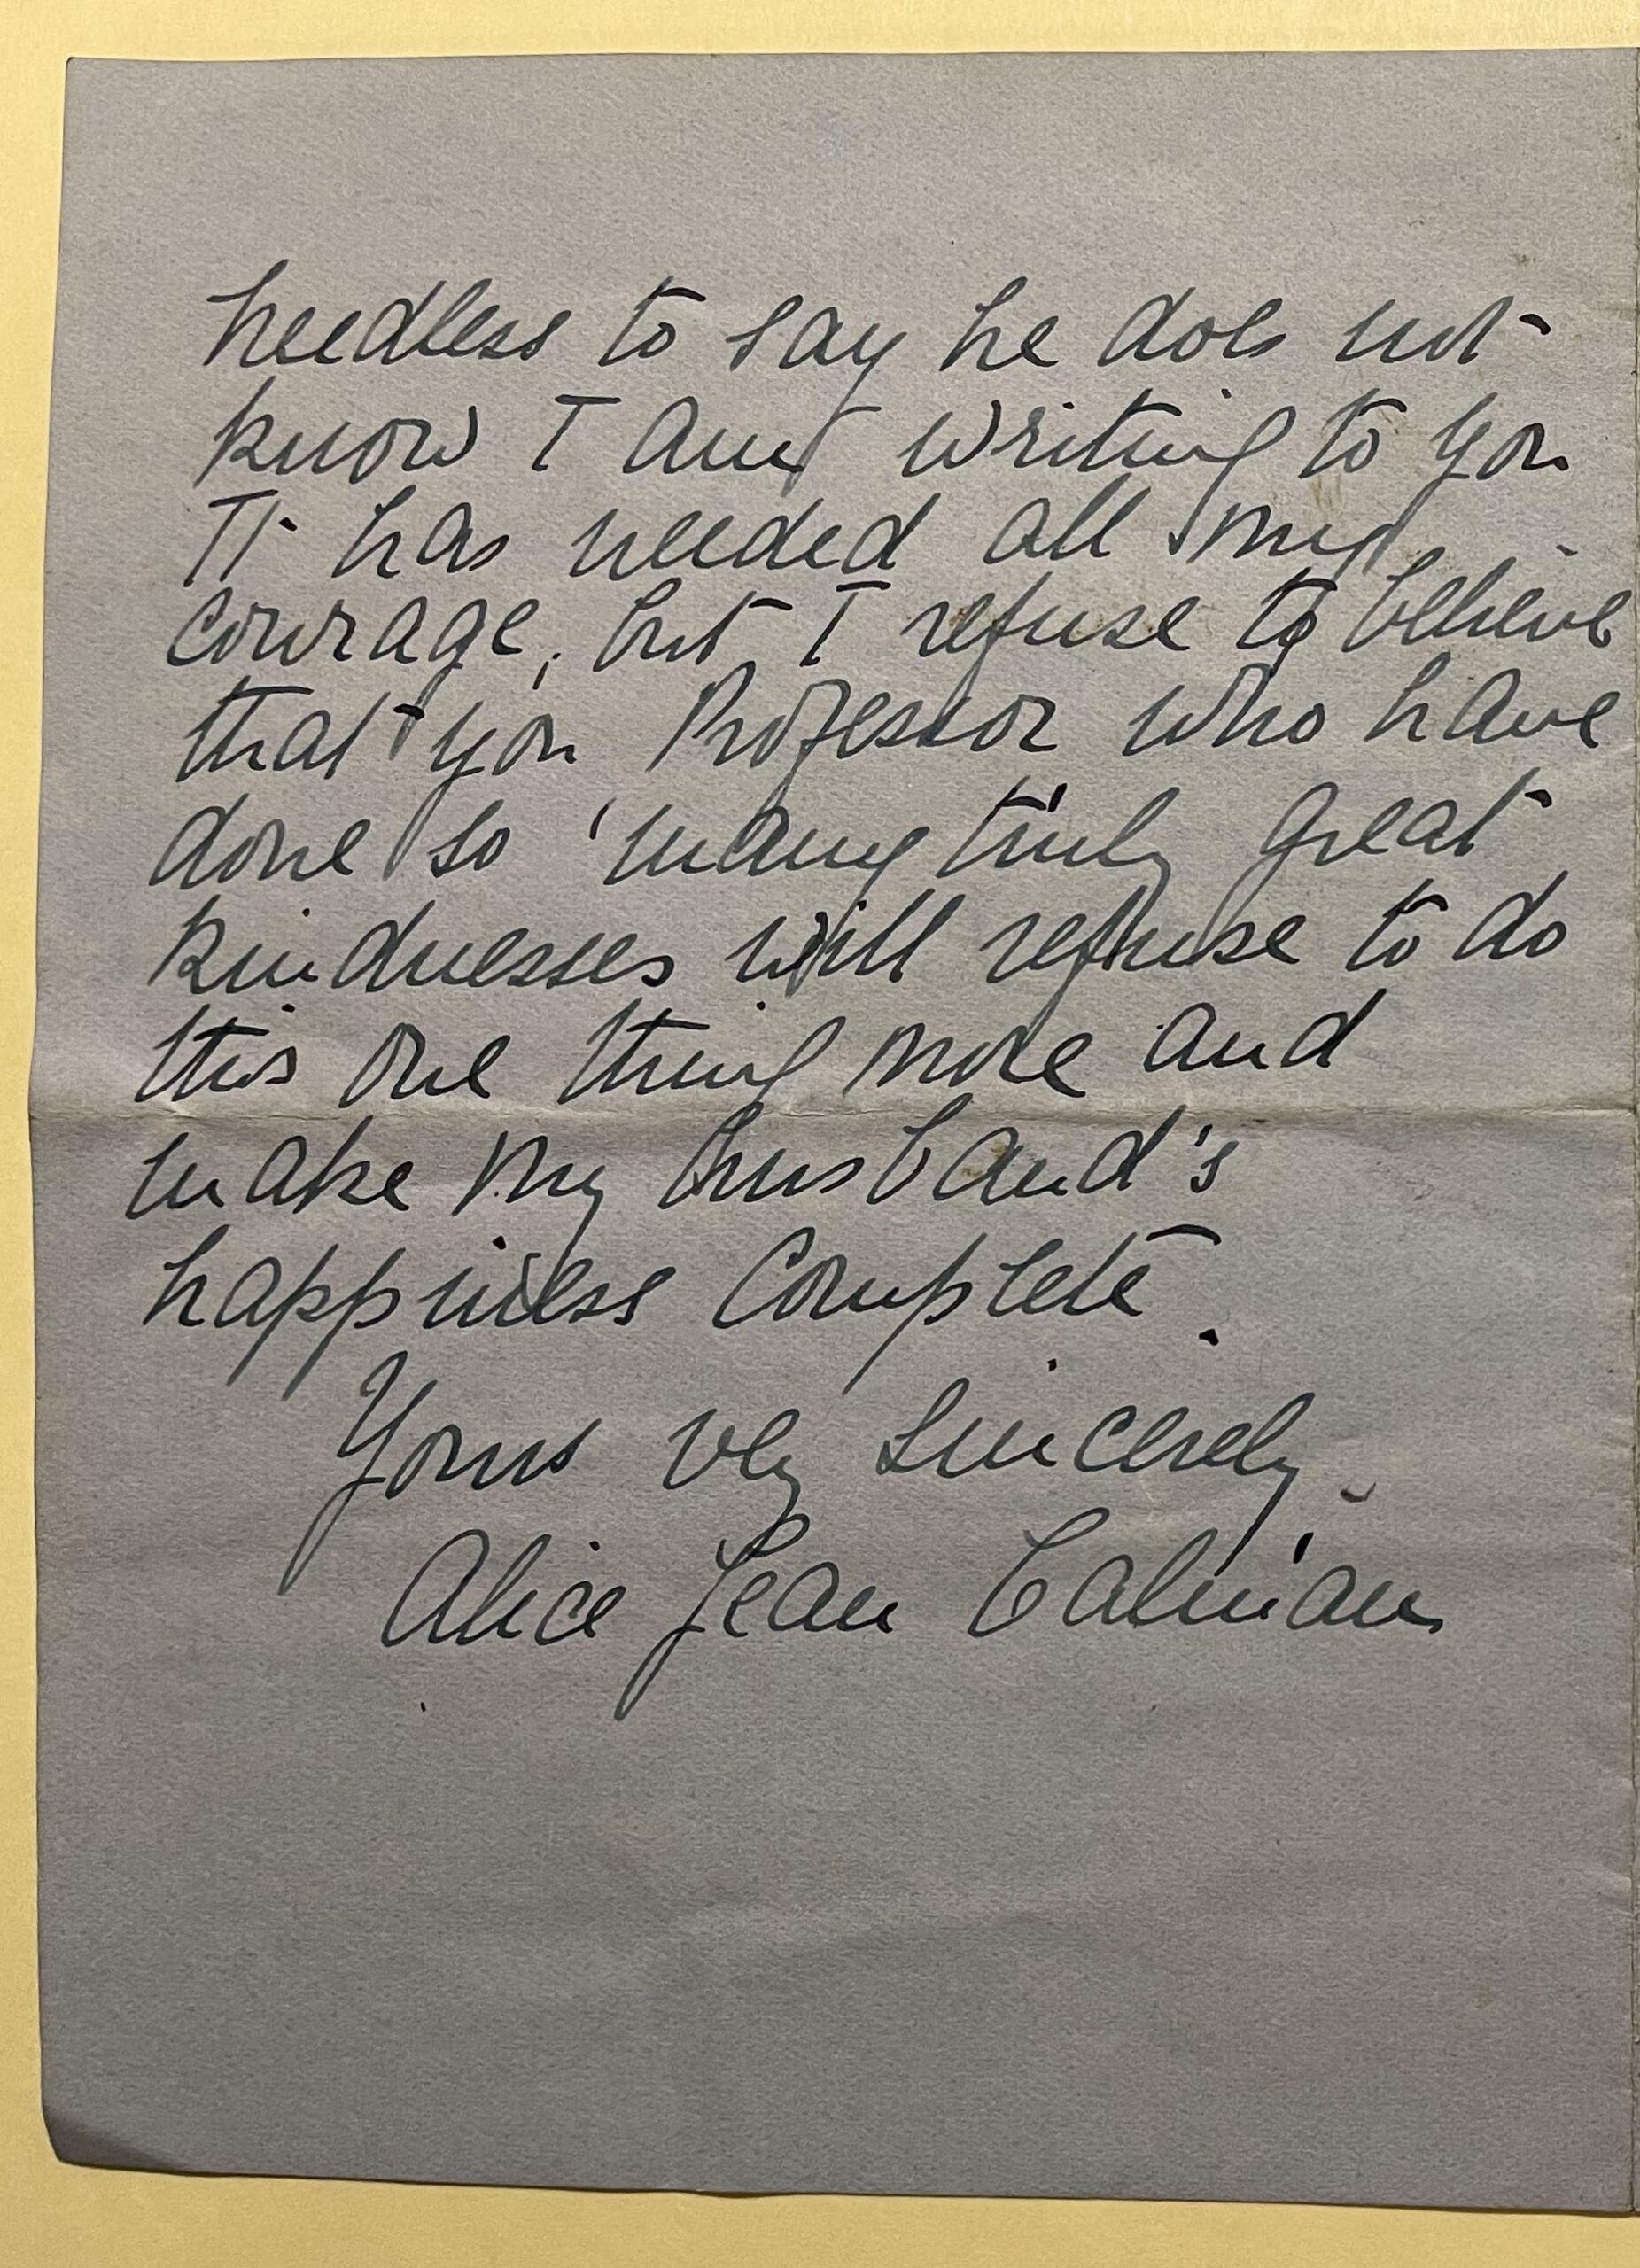 needless to say he does not
know I am writing to you
It has needed all my
courage, but I refuse to believe
that you Professor who have
done so many truly great
kindnesses will refuse to do
this one thing more and
make my husband's
happiness complete.
Yours very sincerely
Alice Jean Calman